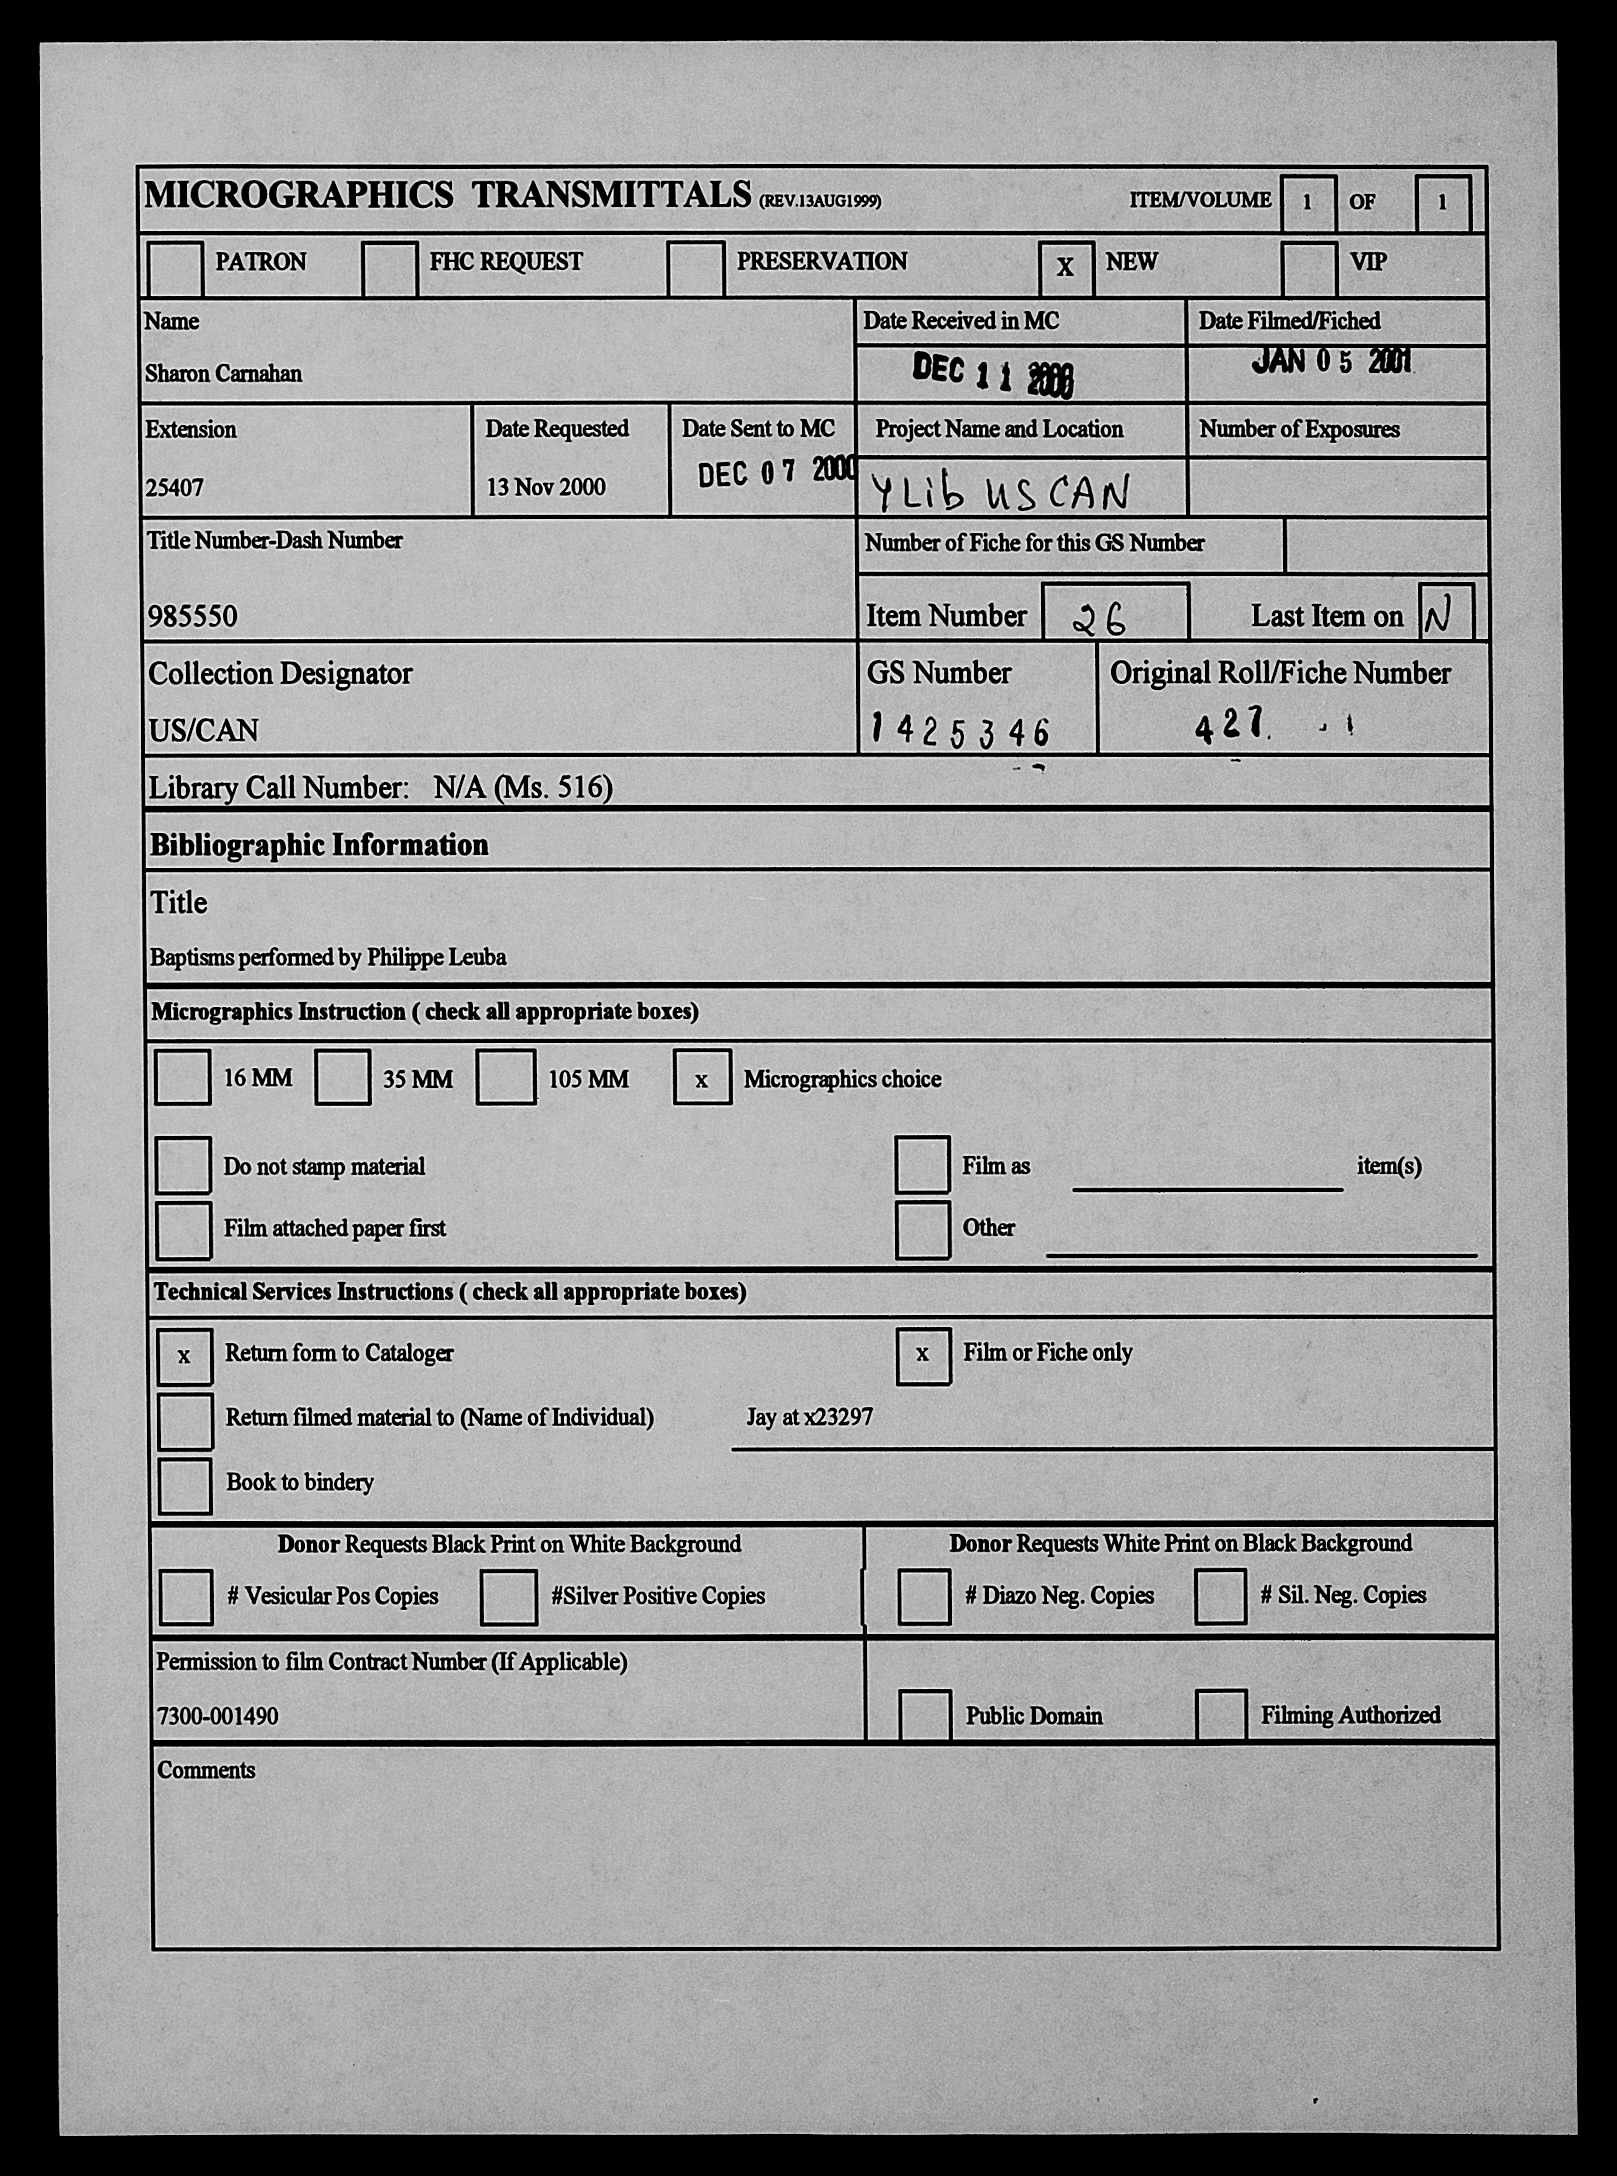 MICROGRAPHICS TRANSMITTALS (REV.13AUG1999) ITEM/VOLUME 1 OF 1
PATRON FHC REQUEST PRESERVATION X NEW VIP
Name Date Received in MC Date Filmed/Fiched
Sharon Carnahan DEC 11 2000 JAN 05 2001
Extension Date Requested Date Sent to MC Project Name and Location Number of Exposures
25407 13 Nov 2000 DEC 07 2000 YLib US CAN
Title Number-Dash Number Number of Fiche for this GS Number
985550 Item Number 26 Last Item on N
Collection Designator GS Number Original Roll/Fiche Number
US/CAN 1425346 427.
Library Call Number: N/A (Ms. 516)
Bibliographic Information
Title
Baptisms performed by Philippe Leuba
Micrographics Instruction ( check all appropriate boxes)
16 MM 35 MM 105 MM x Micrographics choice
Do not stamp material Film as item(s)
Film attached paper first Other
Technical Services Instructions ( check all appropriate boxes)
x Return form to Cataloger x Film or Fiche only
Return filmed material to (Name of Individual) Jay at x23297
Book to bindery
Donor Requests Black Print on White Background Donor Requests White Print on Black Background
# Vesicular Pos Copies #Silver Positive Copies # Diazo Neg. Copies # Sil. Neg. Copies
Permission to film Contract Number (If Applicable)
7300-001490 Public Domain Filming Authorized
Comments